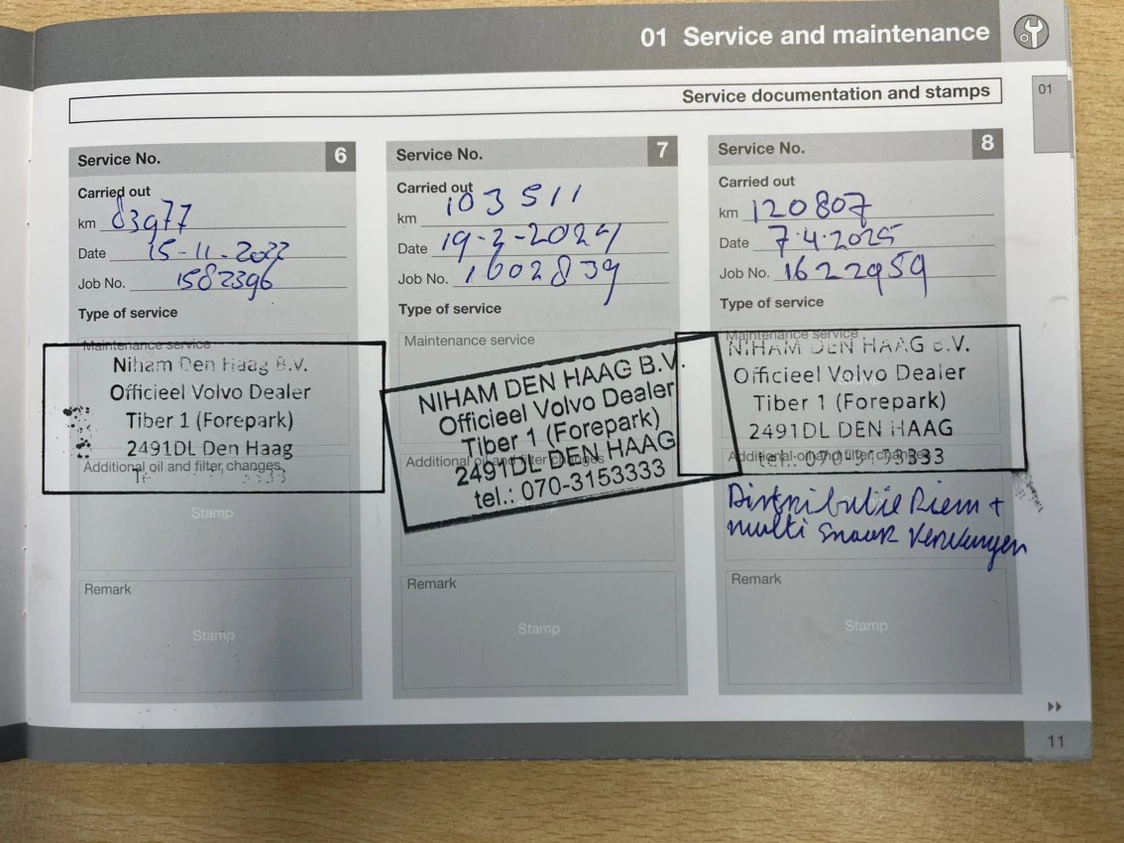 01 Service and maintenance
01
Service documentation and stamps
Service No. 6
Carried out
km 83977
Date 15-11-2022
Job No. 1582396
Type of service
Maintenance service
Niham Den Haag B.V.
Officieel Volvo Dealer
Tiber 1 (Forepark)
2491DL Den Haag
Additional oil and filter changes
Stamp
Remark
Stamp
Service No. 7
Carried out
km 103511
Date 19-2-2024
Job No. 1602839
Type of service
Maintenance service
NIHAM DEN HAAG B.V.
Officieel Volvo Dealer
Tiber 1 (Forepark)
2491DL DEN HAAG
Additional oil and filter changes
tel.: 070-3153333
Remark
Stamp
Service No. 8
Carried out
km 120807
Date 7.4.2025
Job No. 1622959
Type of service
Maintenance service
NIHAM DEN HAAG B.V.
Officieel Volvo Dealer
Tiber 1 (Forepark)
2491DL DEN HAAG
Additional oil and filter changes
tel.: 070-3153333
Distributie Riem +
multi snaar
Remark
Stamp
11